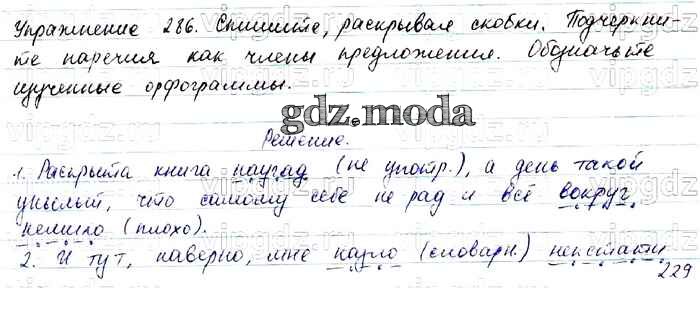 Упражнение 286. Спишите, раскрывая скобки. Подчеркни-
те наречия как члены предложения. Обозначьте
изученные орфограммы.
gdz.moda
Решение.
1. Раскрыта книга наугад (не употр.), а день такой
унылый, что самому себе не рад и всё вокруг
немило (плохо).
2. И тут, наверно, мне назло (словарн.) некстати
229